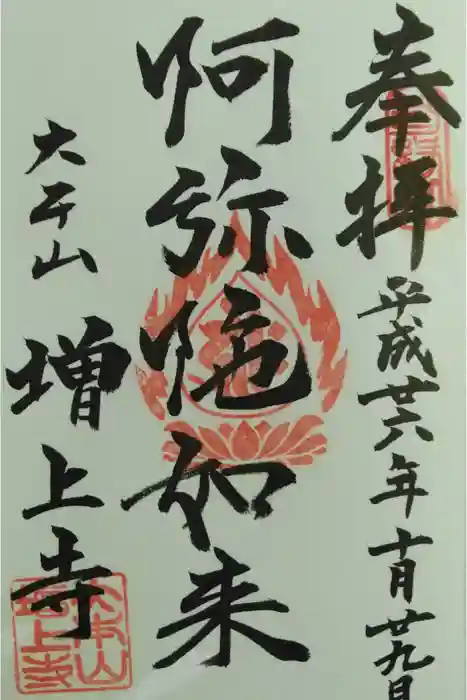 奉拝
平成廿六年十月廿九日
阿弥陀如来
大本山
増上寺
大本山
増上寺